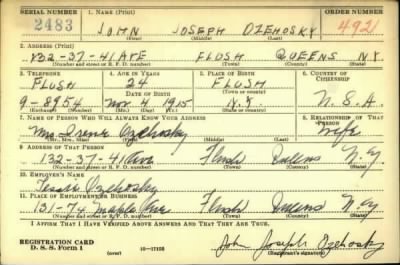 SERIAL NUMBER
2483
1. NAME (Print)
ORDER NUMBER
4921
JOHN JOSEPH OZEHOSKY
(First) (Middle) (Last)
2. ADDRESS (Print)
132-37-41 AVE FLUSH QUEENS NY
(Number and street or R. F. D. number) (Town) (County) (State)
3. TELEPHONE
FLUSH
9-8954
4. AGE IN YEARS
24
DATE OF BIRTH
Nov. 4 1915
(Mo.) (Day) (Yr.)
5. PLACE OF BIRTH
FLUSH
(Town or county)
N.Y.
(State or country)
6. COUNTRY OF CITIZENSHIP
U.S.A.
7. NAME OF PERSON WHO WILL ALWAYS KNOW YOUR ADDRESS
Mrs. Irene Ozehosky
(Mr., Mrs., Miss) (First) (Middle) (Last)
8. RELATIONSHIP OF THAT PERSON
Wife
9. ADDRESS OF THAT PERSON
132-37-41 Ave Flush Queens N.Y
(Number and street or R. F. D. number) (Town) (County) (State)
10. EMPLOYER'S NAME
Ozehosky
11. PLACE OF EMPLOYMENT OR BUSINESS
131-74 Maple Ave Flush Queens N.Y
(Number and street or R. F. D. number) (Town) (County) (State)
I AFFIRM THAT I HAVE VERIFIED ABOVE ANSWERS AND THAT THEY ARE TRUE.
REGISTRATION CARD
D. S. S. Form 1
(over)
16-17105
John Joseph Ozehosky
(Registrant's signature)